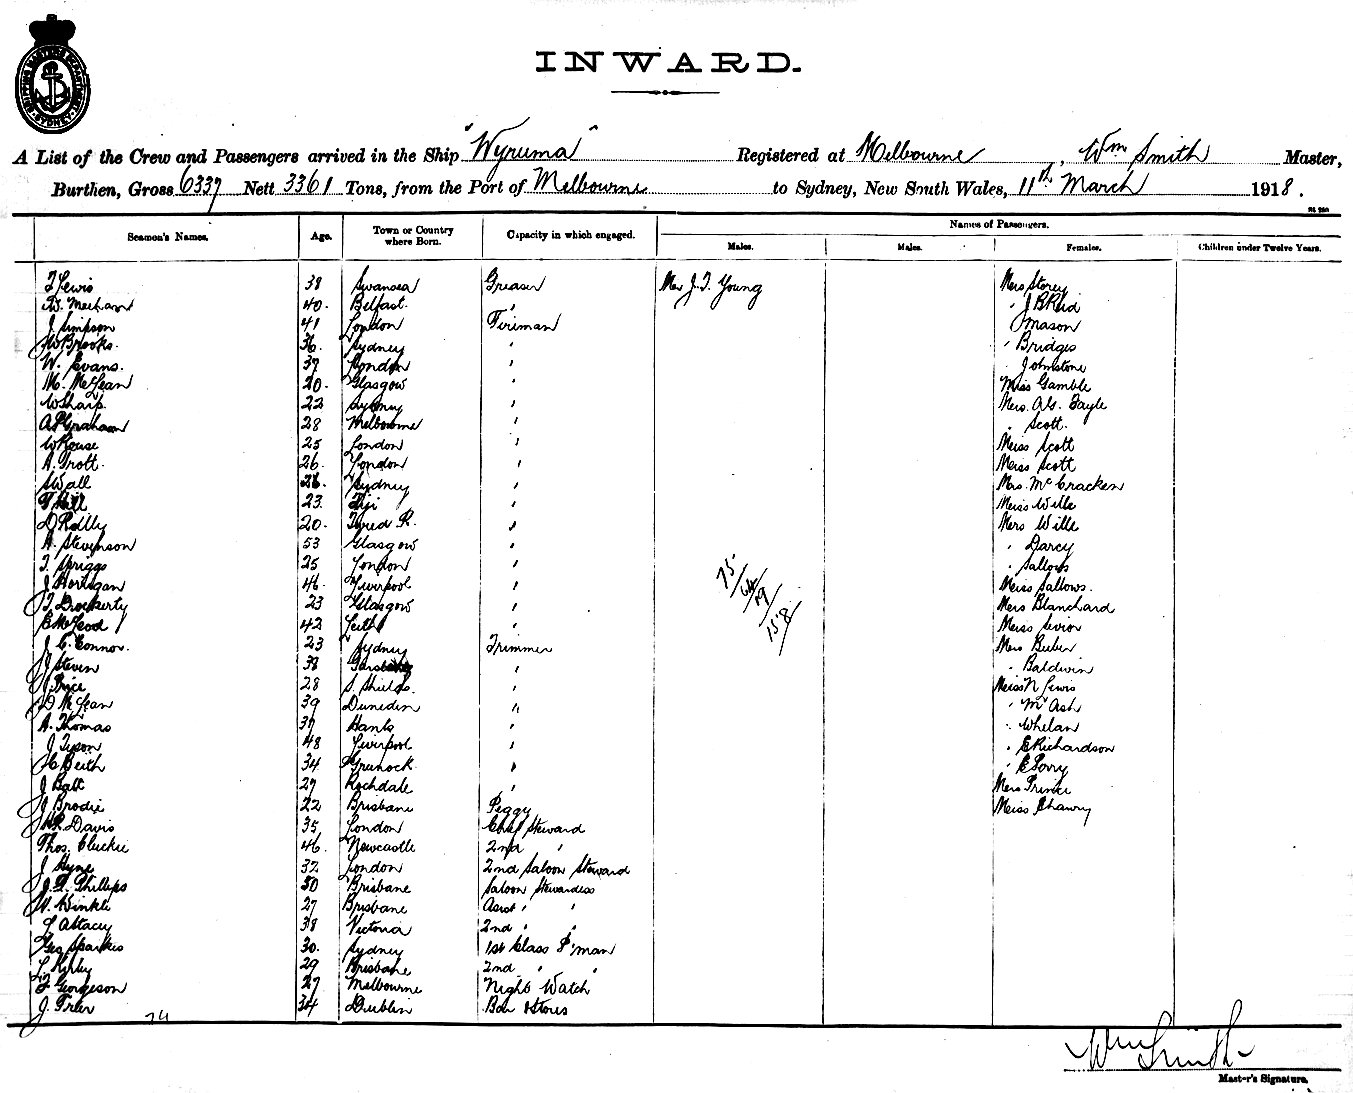 SHIPPING MASTERS DEPARTMENT SYDNEY
INWARD.
A List of the Crew and Passengers arrived in the Ship "Wyruma" Registered at Melbourne, Wm Smith Master,
Burthen, Gross 6337 Nett 3361 Tons, from the Port of Melbourne to Sydney, New South Wales, 11th March 1918.
Names of Passengers.
Seamen's Names. Age. Town or Country where Born. Capacity in which engaged. Males. Males. Females. Children under Twelve Years.
Lewis 38 Swansea Greaser Mr J.T. Young Mrs Storey
W. Meehan 40. Belfast. " " J B Reid
J Simpson 41 London Fireman " Mason
W Brooks. 36. Sydney " " Bridges
W. Evans. 37 London " " Johnstone
M. McLean 20. Glasgow " Miss Gamble
W Sharp. 22 Sydney " Mrs. A.G. Gayle
A P Graham 28 Melbourne " " Scott.
W Rouse 25 London " Miss Scott
A. Trott. 26. London " Miss Scott
S Wall 26. Sydney " Mrs. McCracken
T Hill 23. Fiji " Miss Wille
D Reilly 20. Tweed R. " Mrs Wille
A. Stevenson 53 Glasgow " " Darcy
T. Spriggs 25 London " " Sallows
J Horrigan 46. Liverpool " Miss Sallows.
T. Dockerty 23 Glasgow " Mrs Blanchard
McLeod 42 Leith " Miss
J. C. Connor. 23 Sydney Trimmer Mrs
J Steven 38 " " Baldwin
J Price 28 S. Shields. " Miss N Lewis
D McLean 39 Dunedin " " McAsh
A. Thomas 37 Hants " " Whelan
J Tyson 48 Liverpool " " E Richardson
Beith 34 Greenock " " E Sorry
J Batt 27 Rochdale " Mrs Prince
J Brodie 22 Brisbane Peggy Miss
R. Davis 35 London Chief Steward
Thos. Cluckie 46. Newcastle 2nd "
J Hyne 32 London 2nd Saloon Steward
J. Phillips 50 Brisbane Saloon Stewardess
W. Winkle 27 Brisbane Asst " "
L Attacey 38 Victoria 2nd " "
Geo Sparkes 30. Sydney 1st Class P'man
L Kirby 29 Brisbane 2nd " "
Georgeson 27 Melbourne Night Watch
J. Frew 34 Dublin Bar & Stores
75
64
19
158
74
Wm Smith
Master's Signature.